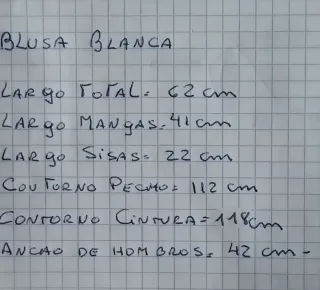 BLUSA BLANCA
LARGO TOTAL= 62 cm
LARGO MANGAS=41 cm
LARGO SISAS= 22 cm
CONTORNO PECHO= 112 cm
CONTORNO CINTURA=118cm
ANCAO DE HOMBROS= 42 cm-